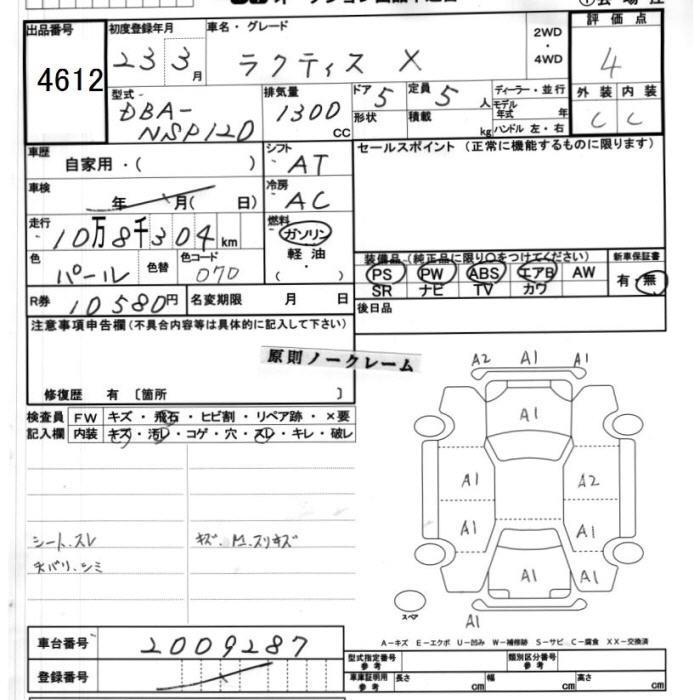 出品番号
4612
初度登録年月
23 3月
車名・グレード
ラクティス X
2WD
・
4WD
評価点
4
型式
DBA-
NSP120
排気量
1300
CC
ドア 5
形状
定員 5 人
積載 kg
ディーラー・並行
モデル
年式 年
ハンドル 左・右
外装 内装
C C
車歴
自家用・( )
シフト
AT
セールスポイント (正常に機能するものに限ります)
車検
年 月( 日)
冷房
AC
走行
10万8千304km
燃料
ガソリン
軽油
・
( )
色
パール
色替
色コード
070
装備品 (純正品に限り○をつけてください)
PS PW ABS エアB AW
SR ナビ TV カワ
新車保証書
有・無
R券 10580円
名変期限 月 日
後日品
注意事項申告欄(不具合内容等は具体的に記入して下さい)
原則ノークレーム
修復歴 有 〔箇所 〕
検査員
記入欄
FW キズ・飛石・ヒビ割・リペア跡・×要
内装 キズ・汚レ・コゲ・穴・スレ・キレ・破レ
A2 A1 A1
A1
A1 A2
A1 A1
A1 A1
A1
スペア
シート.スレ
キズ.M.スリキズ
天バリ.シミ
車台番号 2009287
登録番号
A-キズ E-エクボ U-凹み W-補修跡 S-サビ C-腐食 XX-交換済
型式指定番号
参考
類別区分番号
参考
車庫証明用
参考
長さ cm
幅 cm
高さ cm